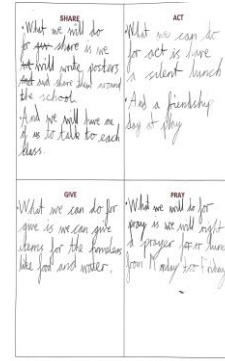 SHARE
•What we will do
for share is we
will write posters
and share them around
the school
•And we will have one
of us to talk to each
class.
ACT
•What we can do
for act is have
a silent lunch
•And a friendship
day at play
GIVE
•What we can do for
give is we can give
items for the homeless
like food and water.
PRAY
•What we will do for
pray is we will right
a prayer for lunch
from Monday too Friday